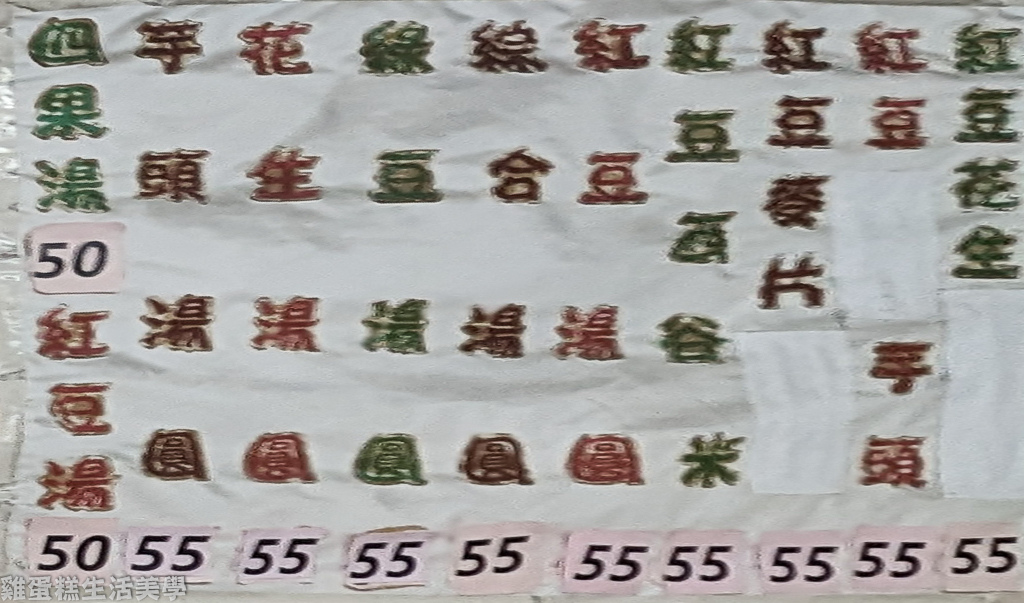 紅豆花生
55
紅豆芋頭
55
紅豆麥片
55
紅豆西谷米
55
紅豆湯圓
55
綜合湯圓
55
綠豆湯圓
55
花生湯圓
55
芋頭湯圓
55
四果湯
50
紅豆湯
50
雞蛋糕生活美學